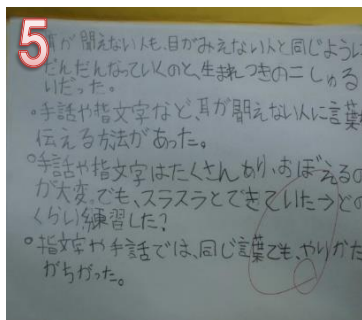 5
耳が聞えない人も、目がみえない人と同じように
だんだんなっていくのと、生まれつきの二しゅる
いだった。
・手話や指文字など、耳が聞えない人に言葉
伝える方法があった。
○手話や指文字はたくさんあり、おぼえるの
が大変。でも、スラスラとできていた→どの
くらい練習した?
○指文字や手話では、同じ言葉でも、やりかた
がちがった。